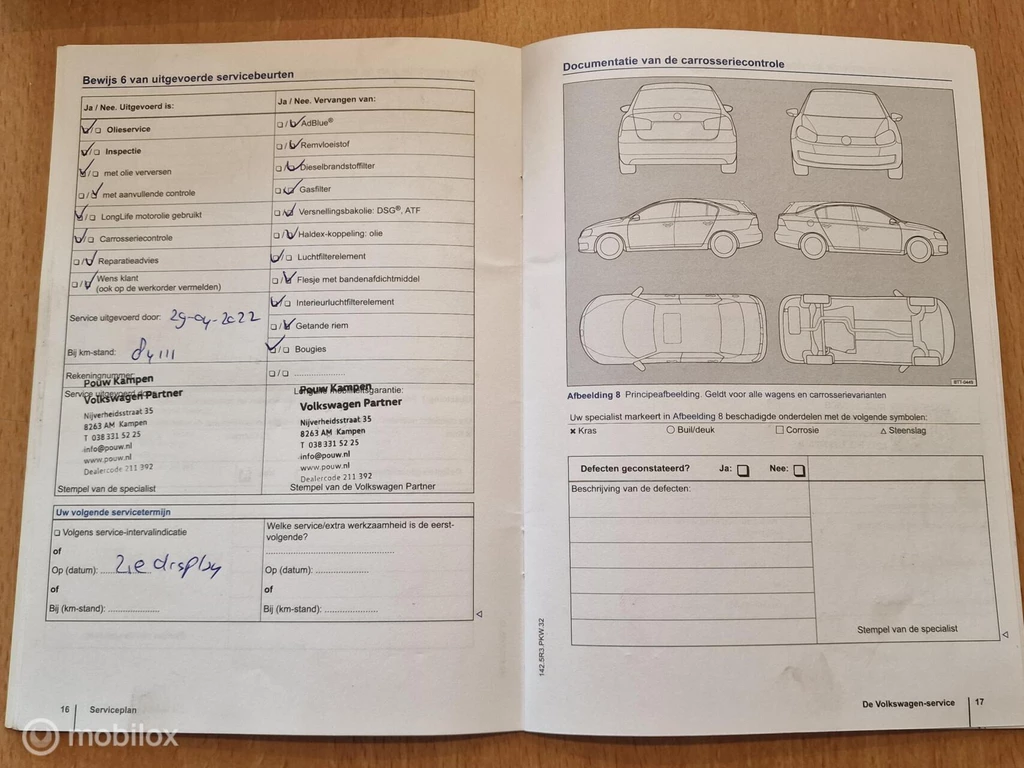 Bewijs 6 van uitgevoerde servicebeurten
Ja / Nee. Uitgevoerd is:
Olieservice
Inspectie
met olie verversen
met aanvullende controle
LongLife motorolie gebruikt
Carrosseriecontrole
Reparatieadvies
Wens klant
(ook op de werkorder vermelden)
Service uitgevoerd door: 29-04-2022
Bij km-stand: 84111
Rekeningnummer:
Service uitgevoerd door:
Pouw Kampen
Volkswagen Partner
Nijverheidsstraat 35
8263 AM Kampen
T 038 331 52 25
info@pouw.nl
www.pouw.nl
Dealercode 211 392
Stempel van de specialist
Ja / Nee. Vervangen van:
AdBlue®
Remvloeistof
Dieselbrandstoffilter
Gasfilter
Versnellingsbakolie: DSG®, ATF
Haldex-koppeling: olie
Luchtfilterelement
Flesje met bandenafdichtmiddel
Interieurluchtfilterelement
Getande riem
Bougies
Pouw Kampen
Volkswagen Partner
Nijverheidsstraat 35
8263 AM Kampen
T 038 331 52 25
info@pouw.nl
www.pouw.nl
Dealercode 211 392
Stempel van de Volkswagen Partner
Uw volgende servicetermijn
Volgens service-intervalindicatie
of
Op (datum): Zie display
of
Bij (km-stand):
Welke service/extra werkzaamheid is de eerst-
volgende?
Op (datum):
of
Bij (km-stand):
16 Serviceplan
Documentatie van de carrosseriecontrole
BTT-0449
Afbeelding 8 Principeafbeelding. Geldt voor alle wagens en carrosserievarianten
Uw specialist markeert in Afbeelding 8 beschadigde onderdelen met de volgende symbolen:
× Kras ○ Buil/deuk □ Corrosie △ Steenslag
Defecten geconstateerd? Ja: Nee:
Beschrijving van de defecten:
Stempel van de specialist
142.5R3.PKW.32
De Volkswagen-service 17
mobilox